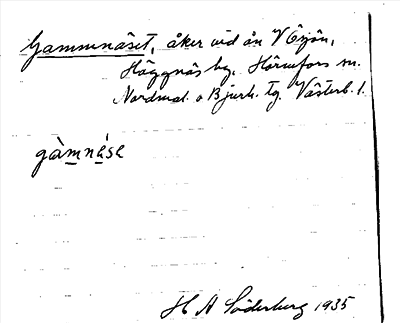 Gammnäset, åker vid ån V Öyån,
Häggnäs by, Hörnefors sn.
Nordmal. o Bjurh. tg. Västerb. l.
gàmnése
H A Söderberg 1935